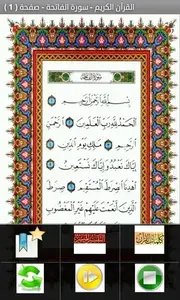 القرآن الكريم - سورة الفاتحة - صفحة ( 1 )
سورة الفاتحة
بِسْمِ ٱللَّهِ ٱلرَّحْمَٰنِ ٱلرَّحِيمِ
ٱلْحَمْدُ لِلَّهِ رَبِّ ٱلْعَٰلَمِينَ ٱلرَّحْمَٰنِ
ٱلرَّحِيمِ مَٰلِكِ يَوْمِ ٱلدِّينِ
إِيَّاكَ نَعْبُدُ وَإِيَّاكَ نَسْتَعِينُ
ٱهْدِنَا ٱلصِّرَٰطَ ٱلْمُسْتَقِيمَ صِرَٰطَ
ٱلَّذِينَ أَنْعَمْتَ عَلَيْهِمْ غَيْرِ ٱلْمَغْضُوبِ